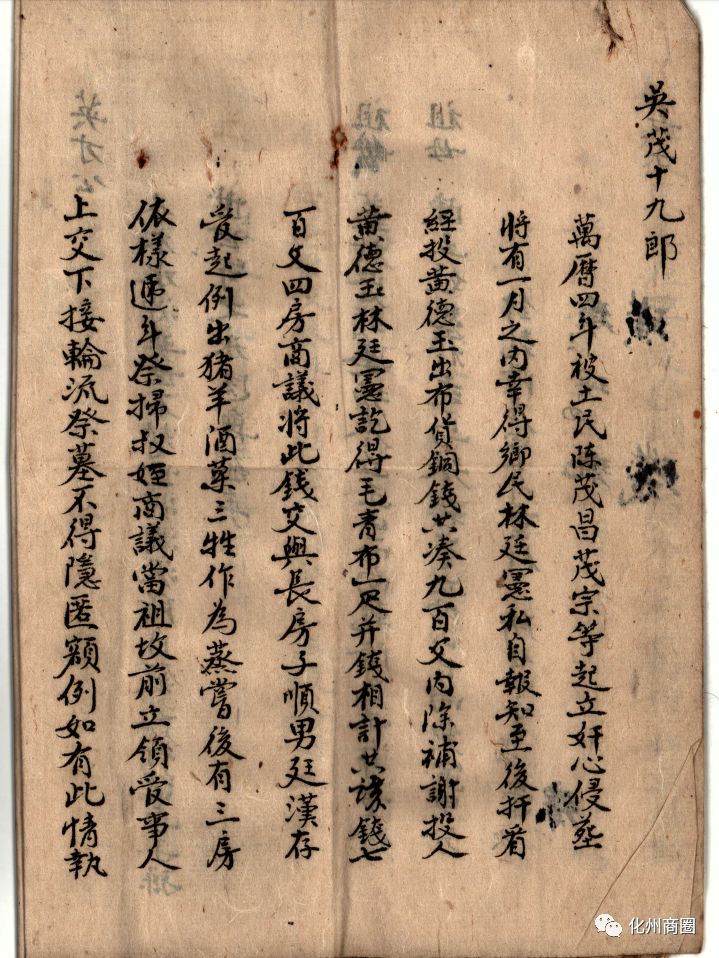 吳茂十九郎
萬曆四年被土民陈茂昌茂宗等起立奸心侵葬
將有一月之内幸得鄉民林廷憲私自報知至後扦着
經投黄德玉出布貨銅錢共凑九百文内除補謝投人
黄德玉林廷憲訖得毛青布一尺并錢相計共該錢七
百文四房商議将此錢交與長房子順男廷漢存
受起例出猪羊酒菓三牲作為蒸嘗後有三房
依樣遞年祭掃叔姪商議當祖坟前立領受事人
上交下接輪流祭墓不得隠匿額例如有此情執
英才公
祖妣
祖
化州商圈